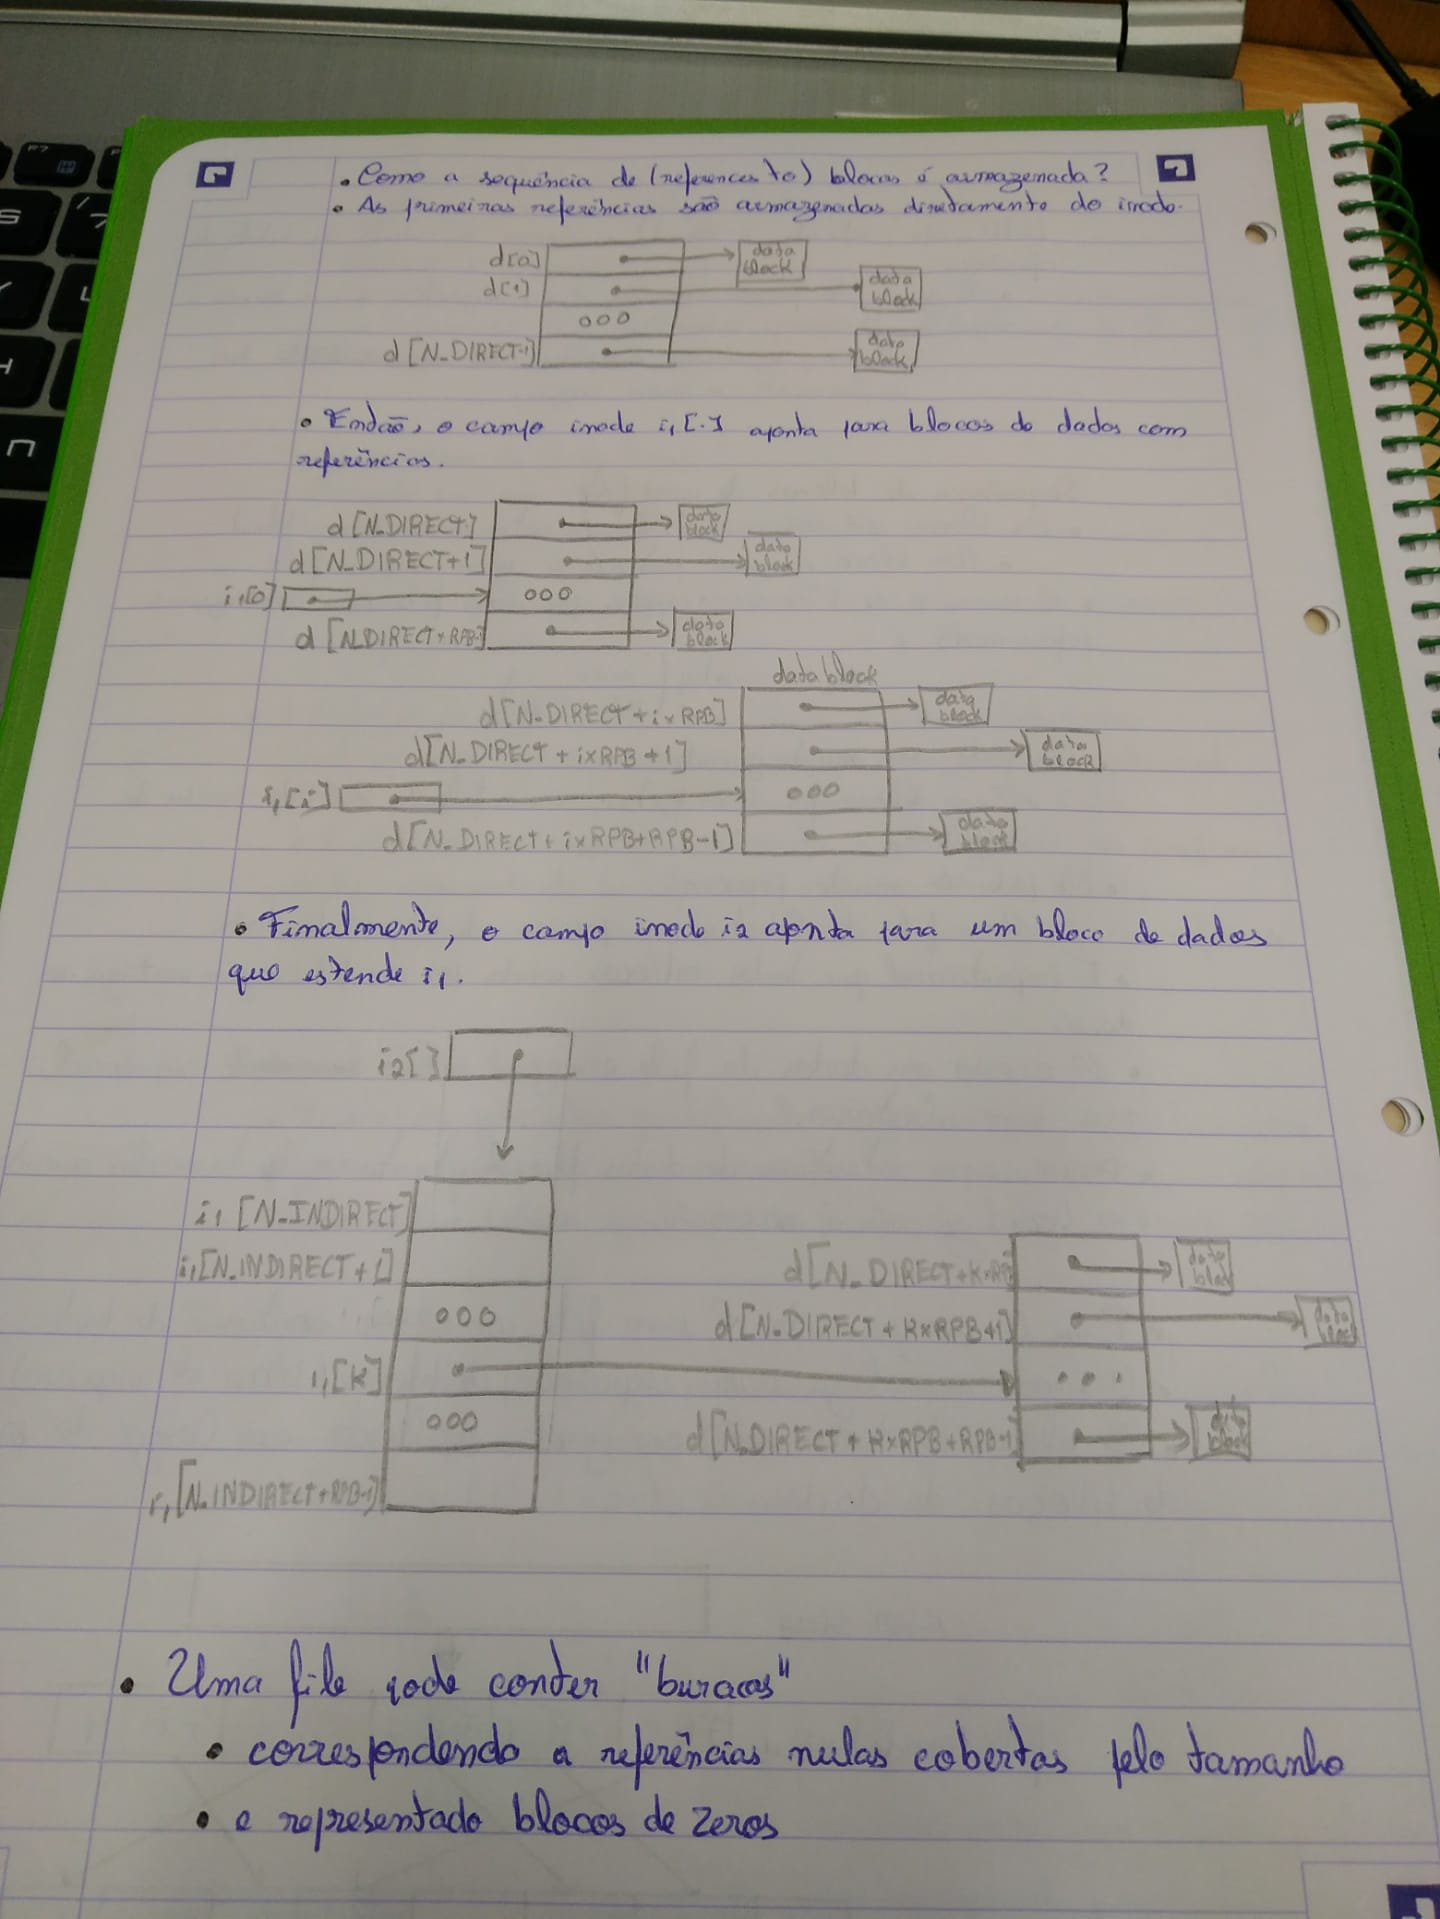 • Como a sequência de (references to) blocos é armazenada?
• As primeiras referências são armazenadas diretamente do inodo.
d[0]
data block
d[1]
data block
000
d[N_DIRECT-1]
data block
• Então, o campo inode i1[.] aponta para blocos de dados com
referências.
d[N_DIRECT]
data block
d[N_DIRECT+1]
data block
i1[0]
000
d[N_DIRECT+RPB-1]
data block
data block
d[N_DIRECT+i×RPB]
data block
d[N_DIRECT+i×RPB+1]
data block
i1[i]
000
d[N_DIRECT+i×RPB+RPB-1]
data block
• Finalmente, o campo inode i2 aponta para um bloco de dados
que estende i1.
i2[ ]
i1[N_INDIRECT]
i1[N_INDIRECT+1]
000
i1[K]
000
i1[N_INDIRECT+RPB-1]
d[N_DIRECT+K×RPB
data block
d[N_DIRECT+K×RPB+1]
data block
...
d[N_DIRECT+K×RPB+RPB-1]
data block
• Uma file pode conter "buracos"
• correspondendo a referências nulas cobertas pelo tamanho
• e representado blocos de zeros
F7